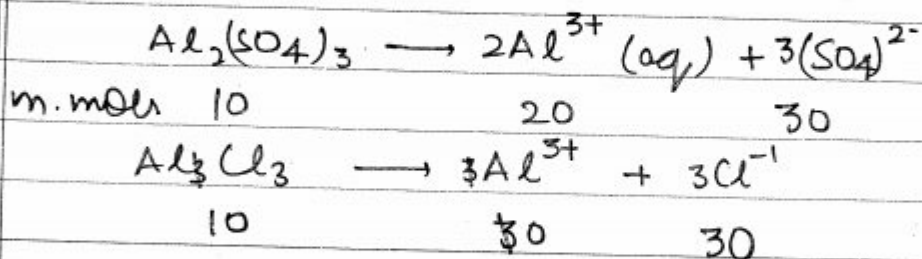 Al₂(SO4)₃ ⟶ 2Al³⁺ (aq) + 3(SO4)²⁻
m.moles 10 20 30
Al Cl₃ ⟶ Al³⁺ + 3Cl⁻¹
10 10 30